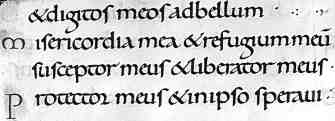 & digitos meos ad bellum
Misericordia mea & refugium meū
susceptor meus & liberator meus
Protector meus & in ipso speraui